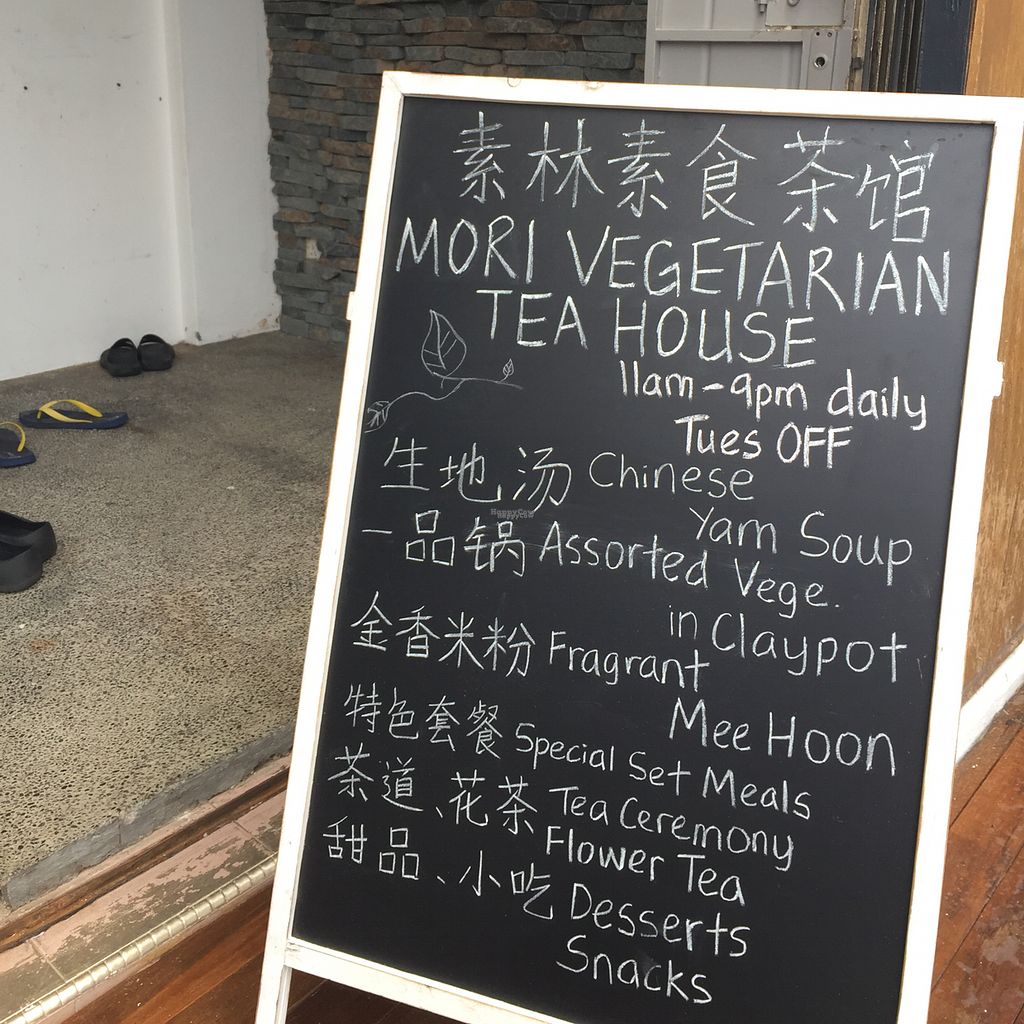 素林素食茶馆
MORI VEGETARIAN
TEA HOUSE
11am-9pm daily
Tues OFF
生地汤 Chinese
Yam Soup
一品锅 Assorted Vege.
in Claypot
金香米粉 Fragrant
Mee Hoon
特色套餐 Special Set Meals
茶道、花茶 Tea Ceremony
Flower Tea
甜品、小吃 Desserts
Snacks
HappyCow
HappyCow